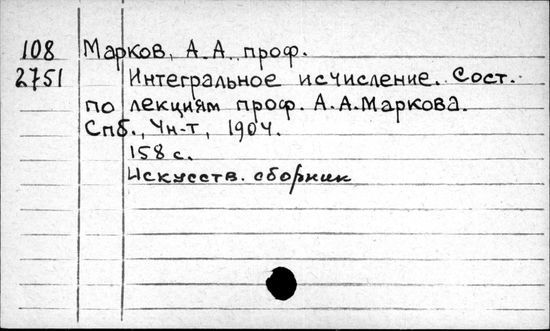 108 Марков, А. А. проф.
2751 Интегральное исчисление. Сост.
по лекциям проф. А. А. Маркова.
Спб., Ун-т, 1904.
158 с.
Искусств. сборник